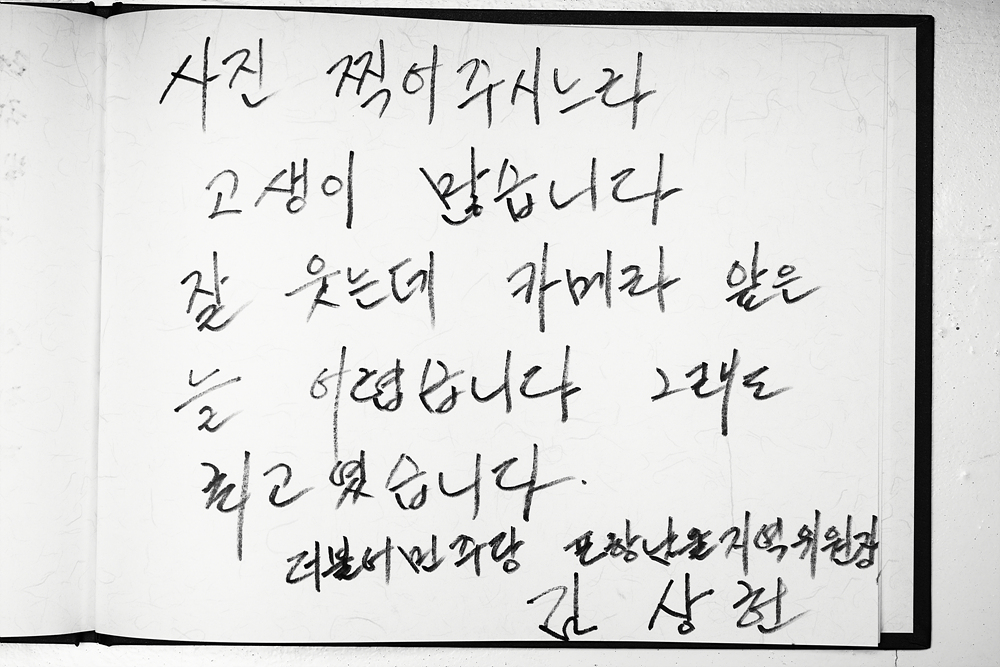 사진 찍어주시느라
고생이 많습니다
잘 웃는데 카메라 앞은
늘 어렵습니다 그래도
최고였습니다.
더불어민주당 포항남울지역위원장
김 상 헌